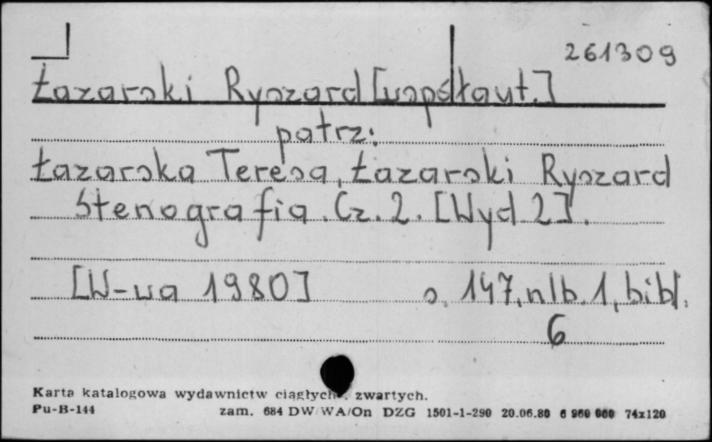 261309
Łazarski Ryszard [współaut.]
patrz:
Łazarska Teresa, Łazarski Ryszard
Stenografia. Cz. 2. [Wyd 2].
[W-wa 1980] s. 147, nlb. 1, bibl.
6
Karta katalogowa wydawnictw ciągłych i zwartych.
Pu-B-144 zam. 684 DW WA/On DZG 1501-1-290 20.06.80 6 960 000 74x120